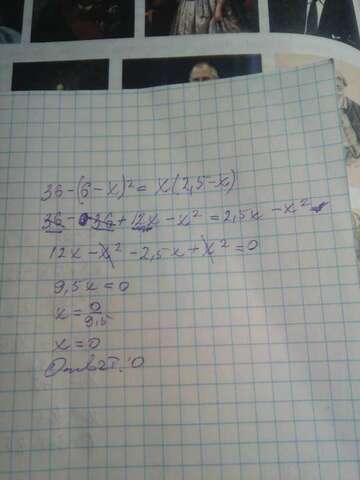 36-(6-x)²=x(2,5-x)
36-36+12x-x²=2,5x-x²
12x-x²-2,5x+x²=0
9,5x=0
x=0/9,5
x=0
Ответ: 0